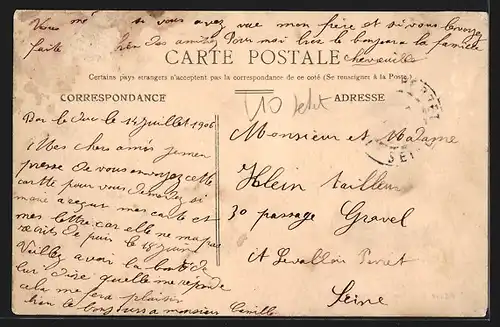 Vous me si vous avez vue mon frère et si vous le voyez
faite bien des amitiez Pour moi bien le bonjour a la famille
chevreuille
CARTE POSTALE
Certains pays étrangers n'acceptent pas la correspondance de ce coté (Se renseigner à la Poste)
CORRESPONDANCE
ADRESSE
Bar le Duc le 14 juillet 1906
Mes chers amis je men
presse de vous envoyez cette
cartte pour vous demandez si
marie a reçus mes carte et
mes lettre car elle ne ma pas
récrits de puis le 18 juin
Veillez avoir la bonté de
lui dire quelle me réponde
cela me fera plaisir
bien le bonjours a monsieur Camille
10
Monsieur et Madame
Klein tailleur
30 passage Gravel
it Levallois Perret
Seine